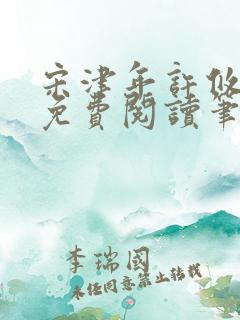 宋津年許悠
免費閱讀筆
李瑞國
未經同意禁止轉載